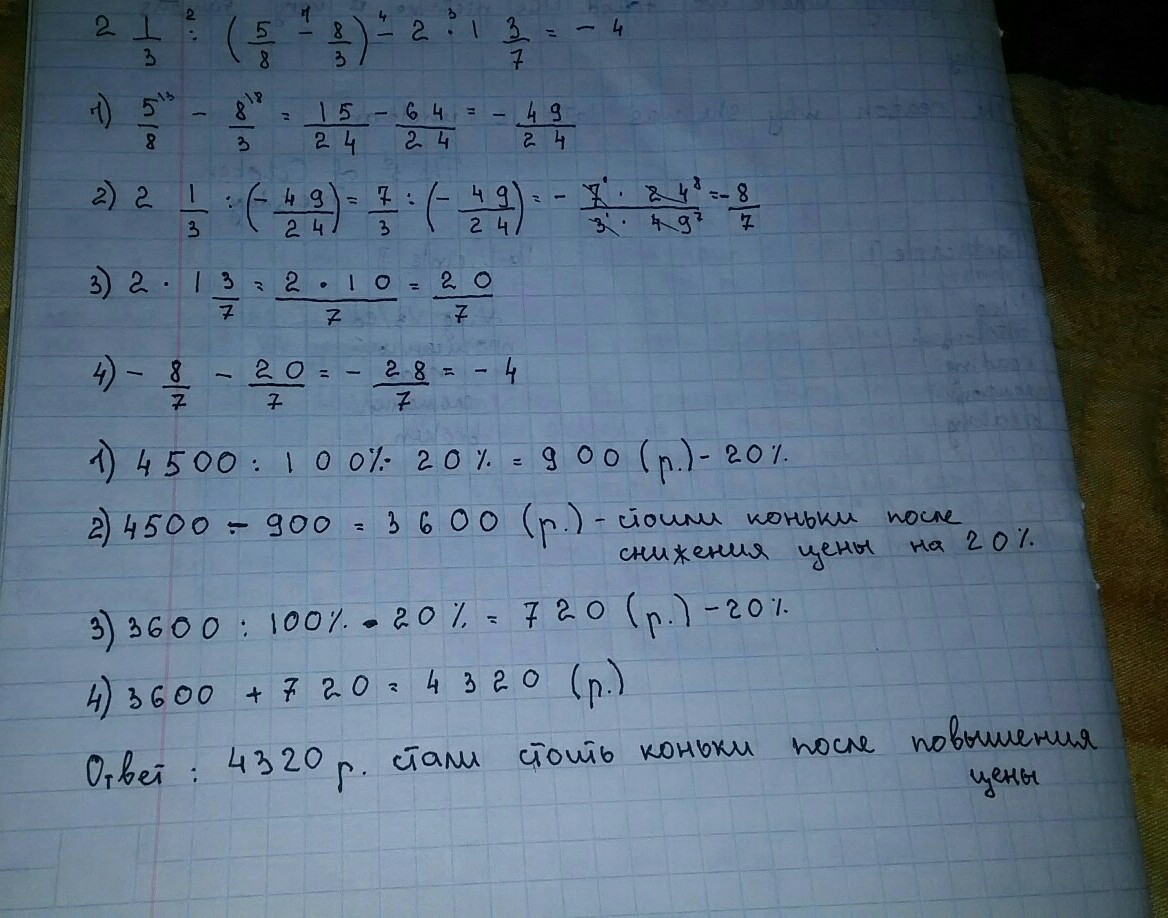 2 1/3 :² (5/8 -¹ 8/3) -⁴ 2 ·³ 1 3/7 = - 4
1) 5\3/8 - 8\8/3 = 15/24 - 64/24 = - 49/24
2) 2 1/3 : (- 49/24) = 7/3 : (- 49/24) = - 7¹ · 24⁸/3¹ · 49⁷ = - 8/7
3) 2 · 1 3/7 = 2 · 10/7 = 20/7
4) - 8/7 - 20/7 = - 28/7 = - 4
1) 4500 : 100% · 20% = 900 (р.) - 20%
2) 4500 - 900 = 3600 (р.) - стоили коньки после
снижения цены на 20%
3) 3600 : 100% · 20% = 720 (р.) - 20%
4) 3600 + 720 = 4320 (р.)
Ответ : 4320 р. стали стоить коньки после повышения
цены